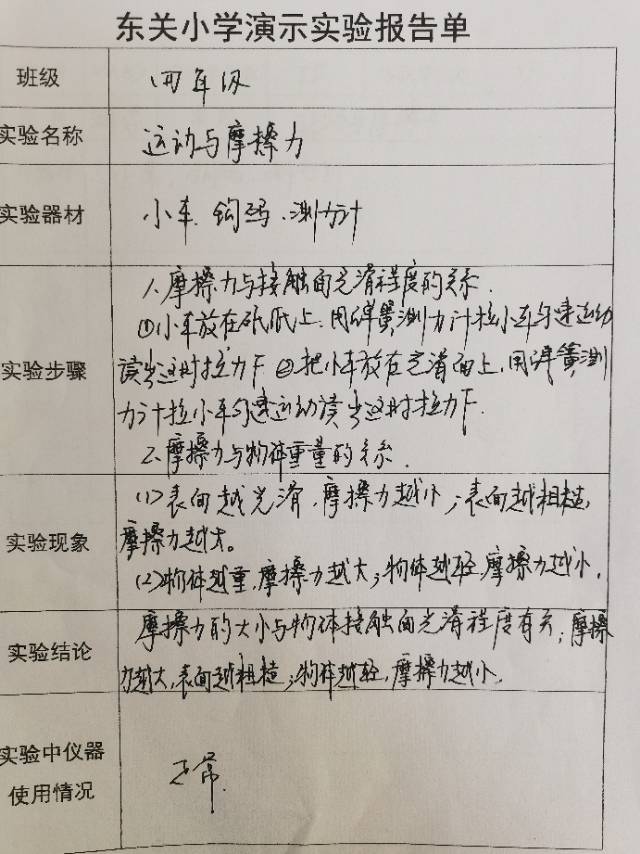 东关小学演示实验报告单
班级
四年级
实验名称
运动与摩擦力
实验器材
小车、钩码、测力计
实验步骤
1、摩擦力与接触面光滑程度的关系.
①小车放在砥纸上、用弹簧测力计拉小车匀速运动
读出这时拉力F ②把小车放在光滑面上、用弹簧测
力计拉小车匀速运动读出这时拉力F.
2、摩擦力与物体重量的关系.
实验现象
(1)表面越光滑,摩擦力越小;表面越粗糙,
摩擦力越大。
(2)物体越重,摩擦力越大;物体越轻,摩擦力越小.
实验结论
摩擦力的大小与物体接触面光滑程度有关;摩擦
力越大,表面越粗糙;物体越轻,摩擦力越小.
实验中仪器
使用情况
正常.